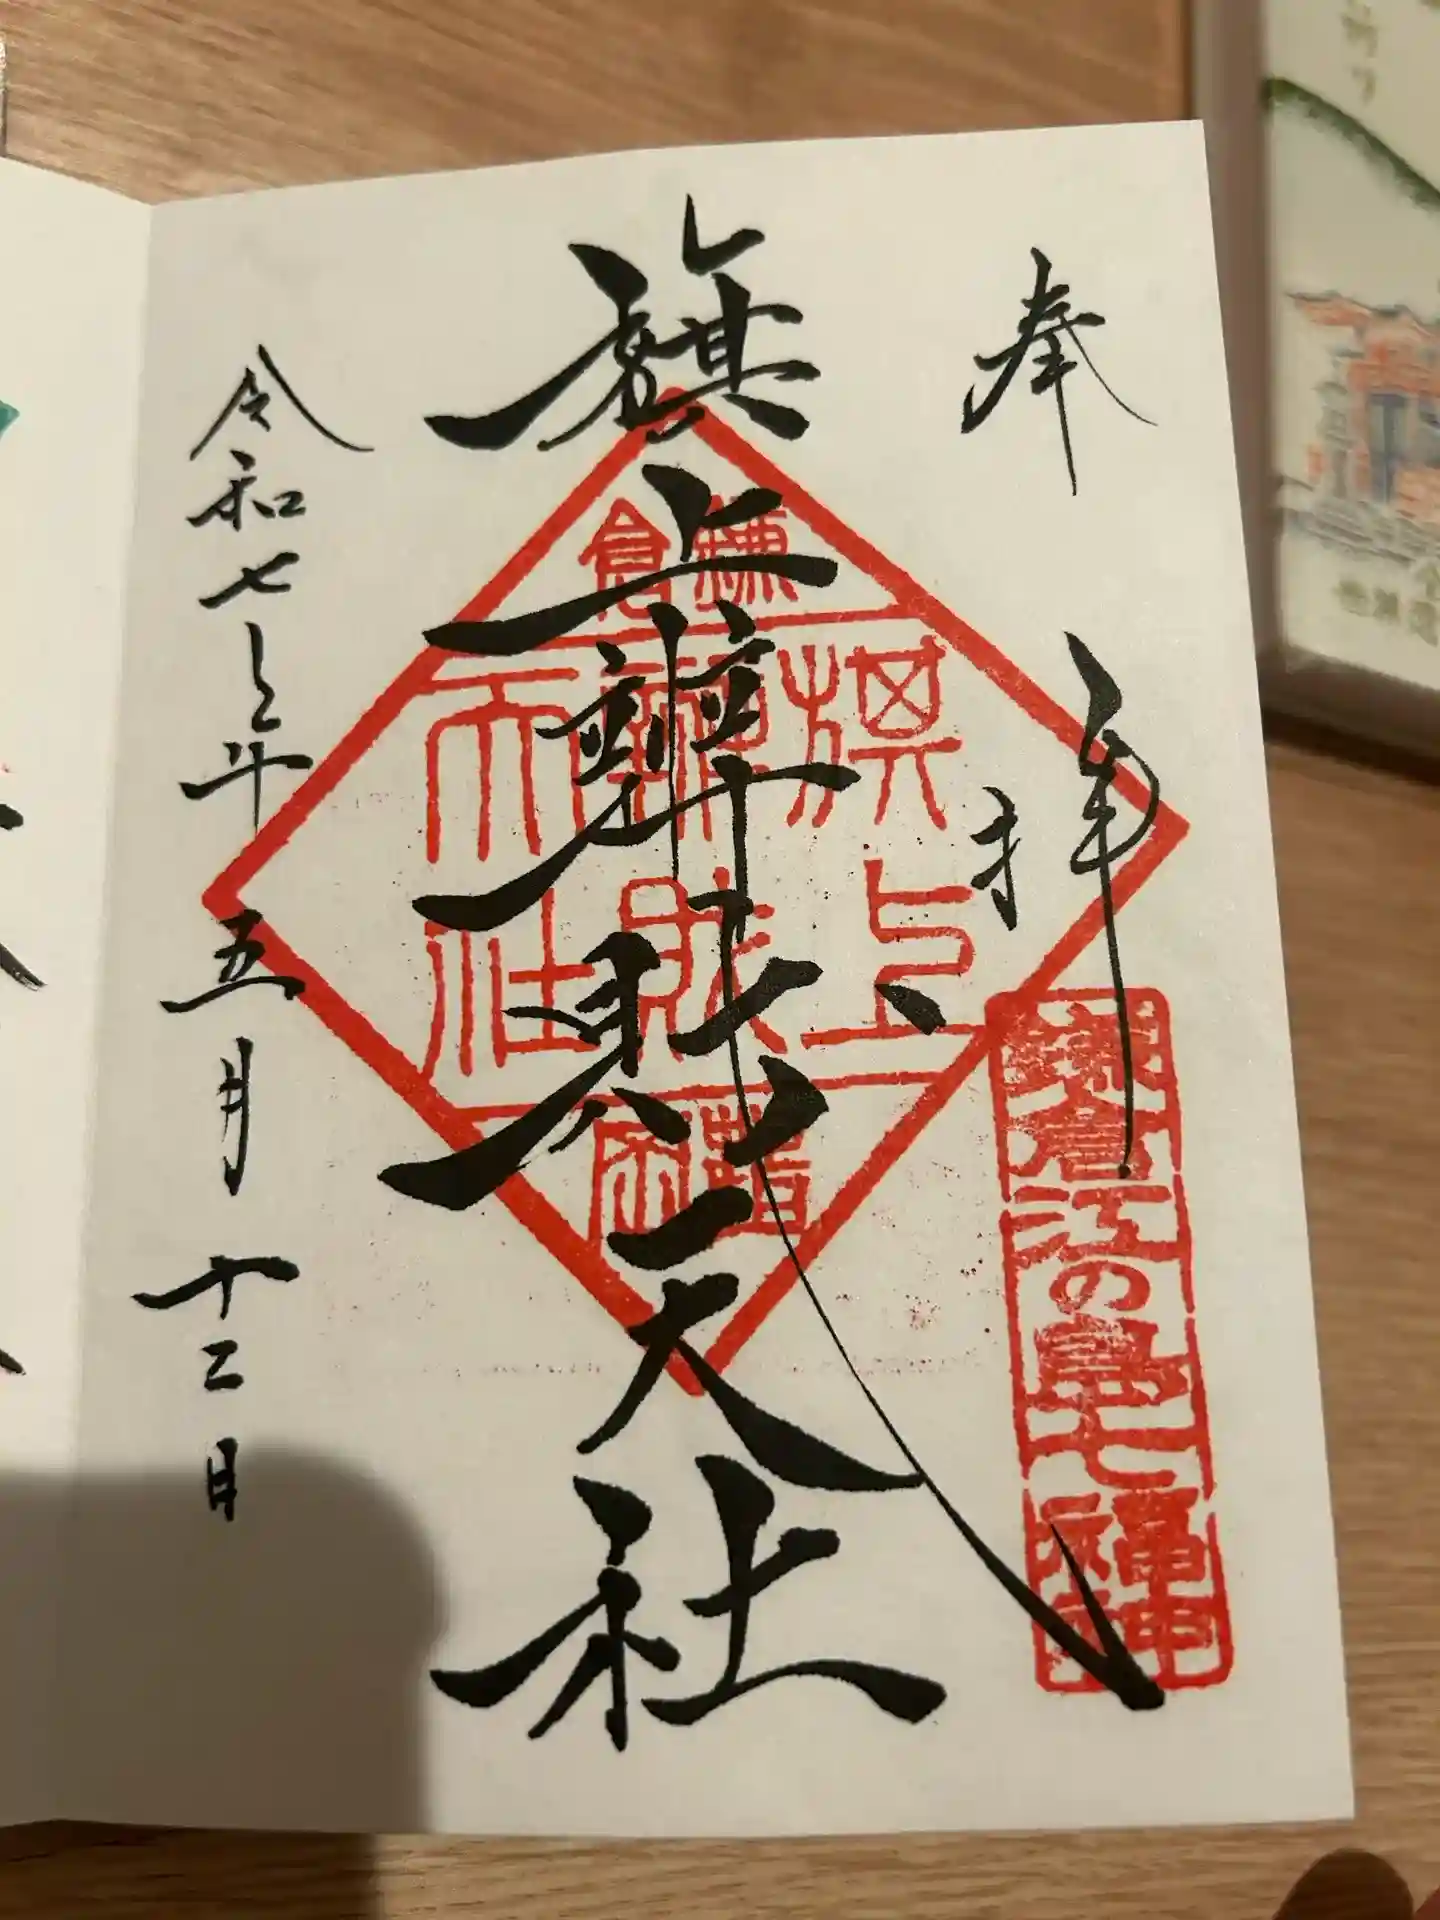 奉拝
旗上辨財天社
令和七年五月十二日
鎌倉
旗上
辨財
天社
鎌倉江の島七福神